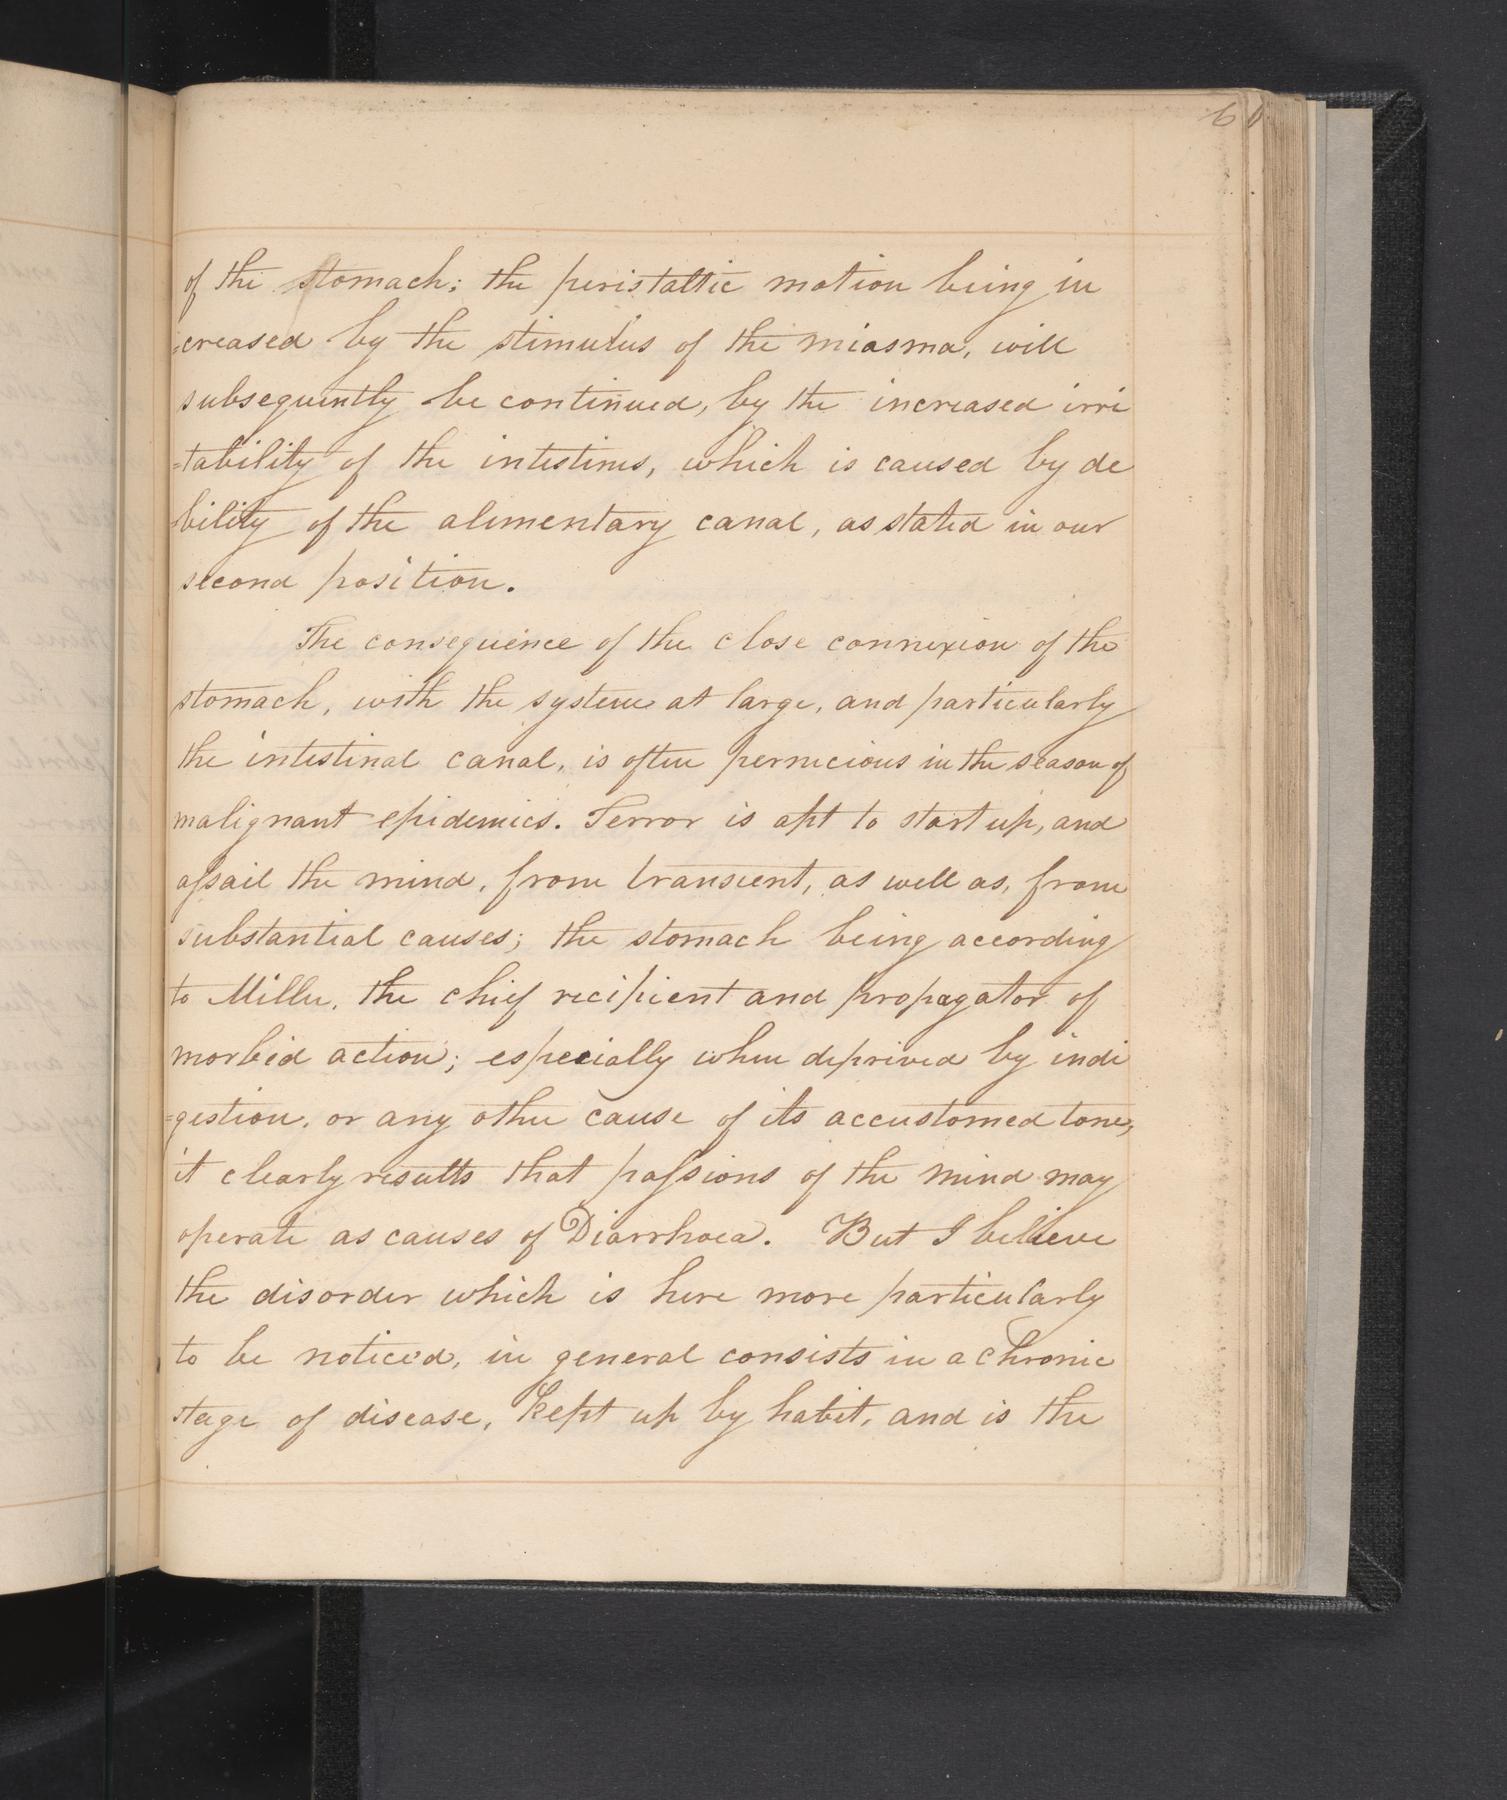 6
of the stomach; the peristaltic motion being in
=creased by the stimulus of the miasma, will
subsequently be continued, by the increased irri
=tability of the intestines, which is caused by de
=bility of the alimentary canal, as stated in our
second position.
The consequence of the close connexion of the
stomach, with the system at large, and particularly
the intestinal canal, is often pernicious in the season of
malignant epidemics. Terror is apt to start up, and
assail the mind, from transient, as well as, from
substantial causes; the stomach being according
to Miller, the chief recipient and propagator of
morbid action; especially when deprived by indi
=gestion, or any other cause of its accustomed tone,
it clearly results that passions of the mind may
operate as causes of Diarrhoea. But I believe
the disorder which is here more particularly
to be noticed, in general consists in a chronic
stage of disease, kept up by habit, and is the